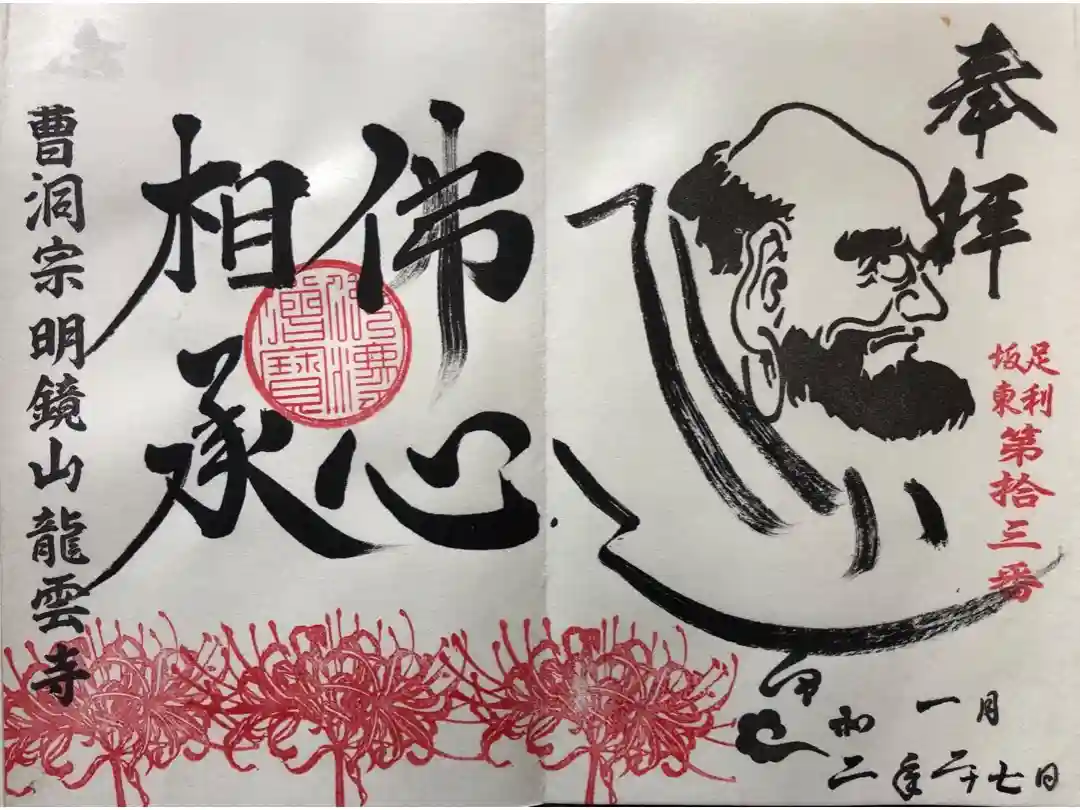 奉拝
足利
坂東
第拾三番
一月
二十七日
和
二年
佛心
相承
曹洞宗明鏡山龍雲寺